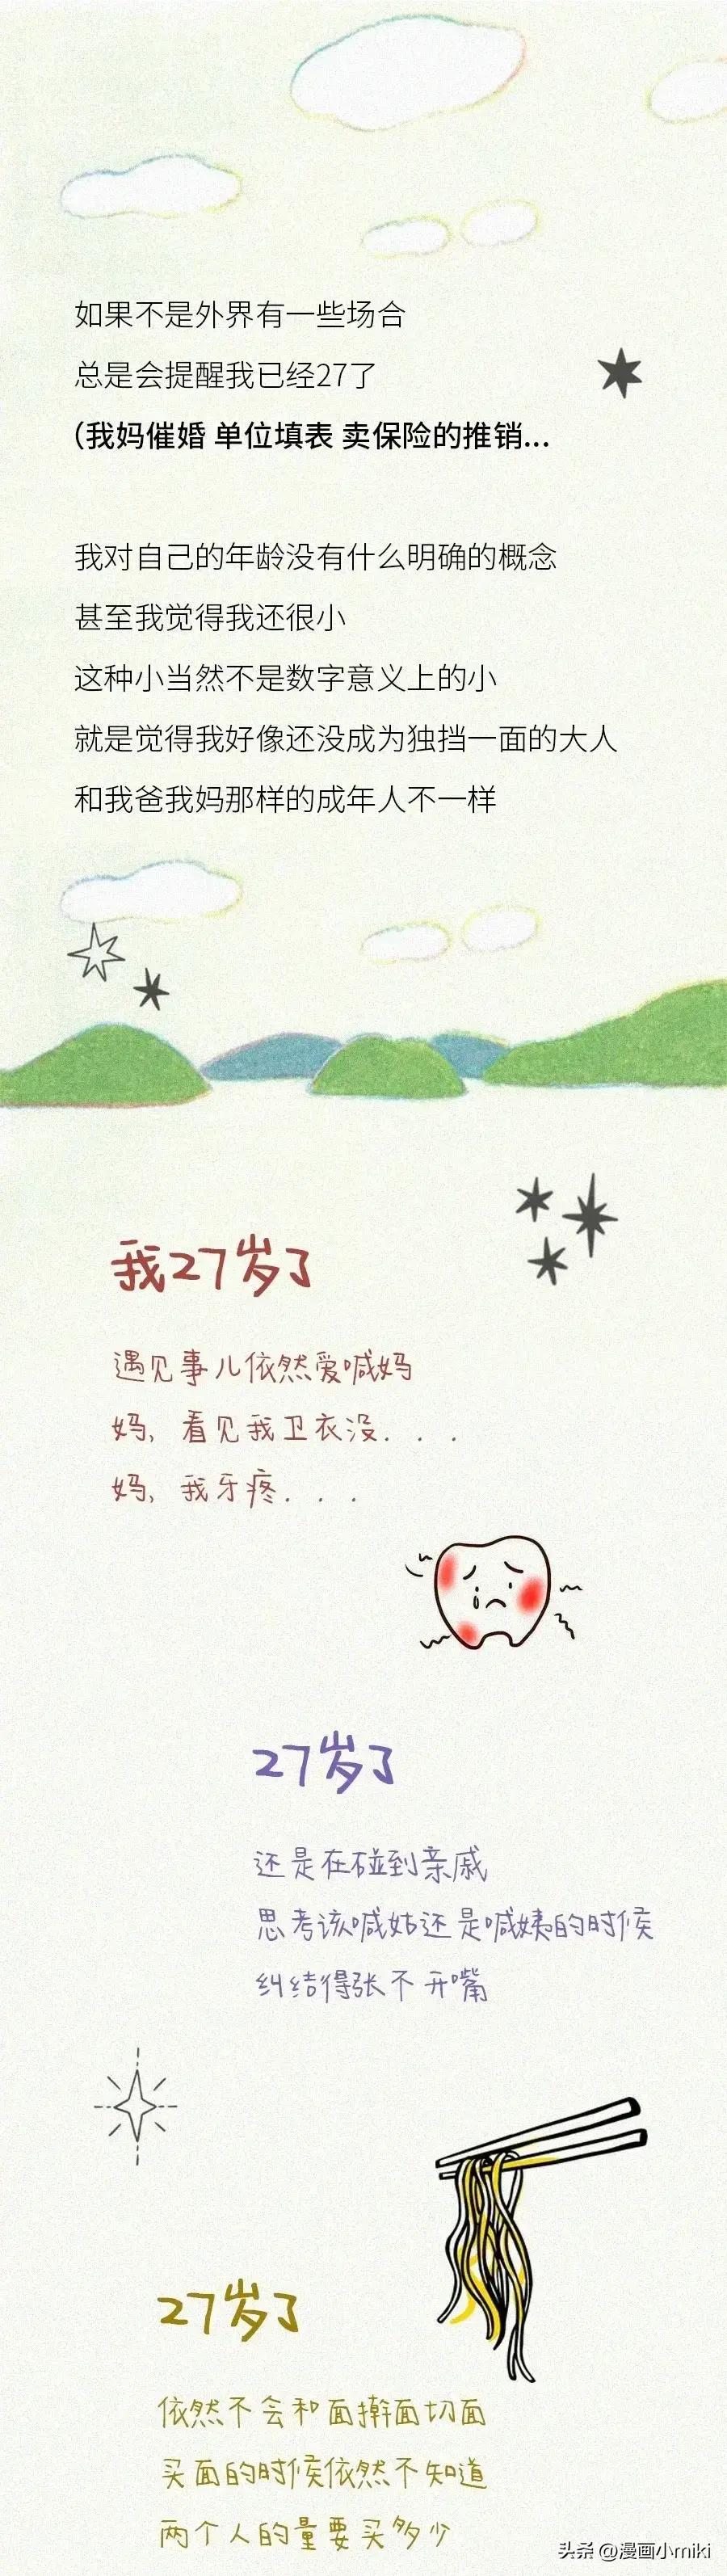 如果不是外界有一些场合
总是会提醒我已经27了
(我妈催婚 单位填表 卖保险的推销...
我对自己的年龄没有什么明确的概念
甚至我觉得我还很小
这种小当然不是数字意义上的小
就是觉得我好像还没成为独挡一面的大人
和我爸我妈那样的成年人不一样
我27岁了
遇见事儿依然爱喊妈
妈，看见我卫衣没...
妈，我牙疼...
27岁了
还是在碰到亲戚
思考该喊姑还是喊姨的时候
纠结得张不开嘴
27岁了
依然不会和面擀面切面
买面的时候依然不知道
两个人的量要买多少
头条 @漫画小miki